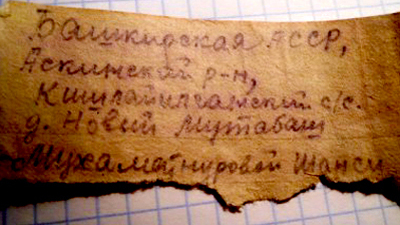 Башкирская АССР,
Аскинской р-н,
Кшлайилгамский с/с.
д. Новий Мутабаш
Мухаматнуровой Шамси